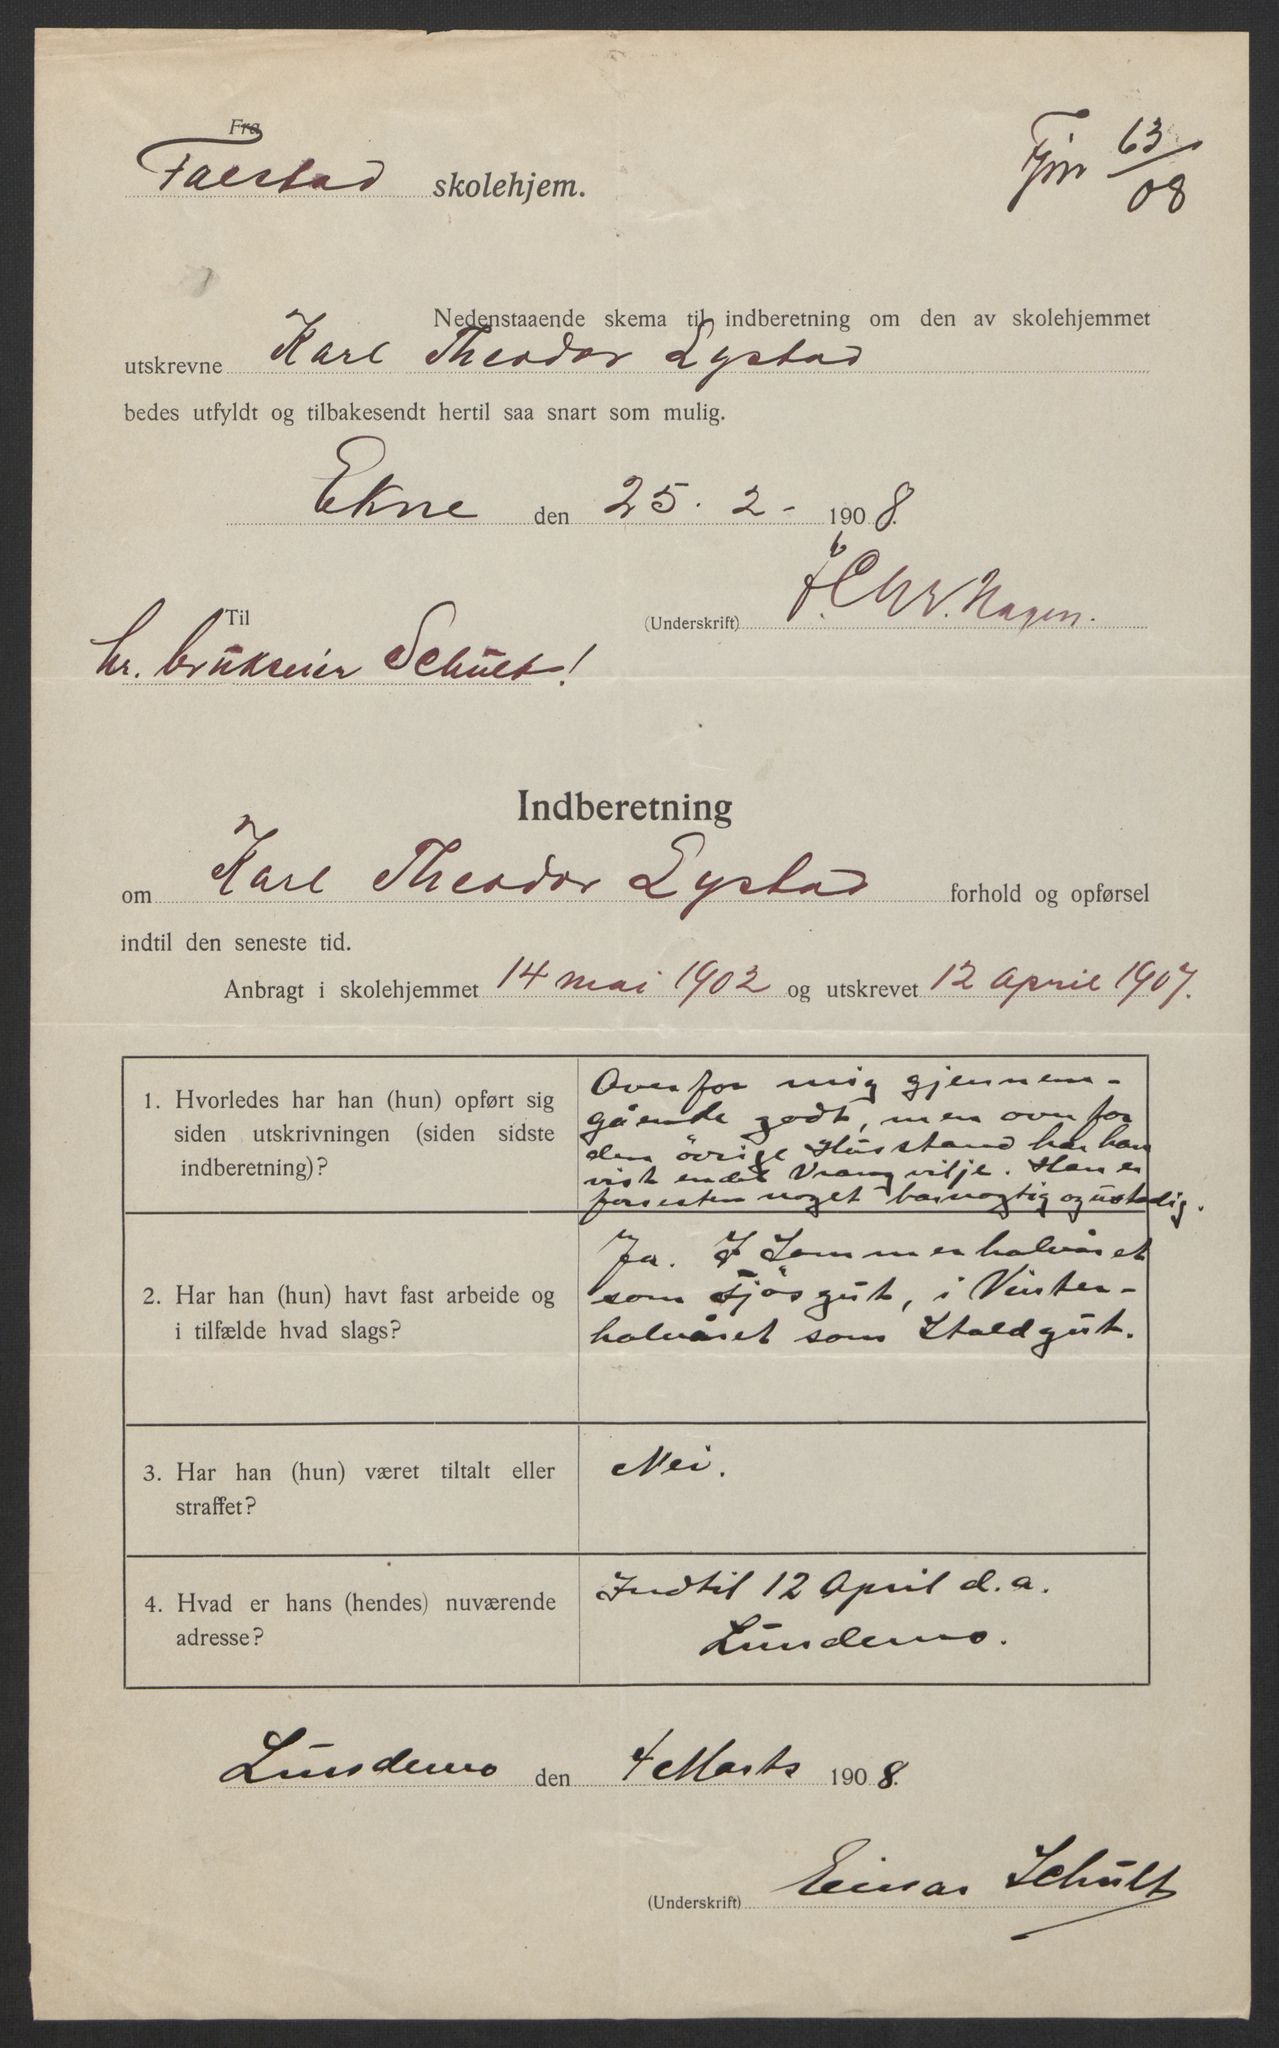 Fra
Falstad skolehjem.
63/08
Nedenstaaende skema til indberetning om den av skolehjemmet
utskrevne Karl Theodor Lystad
bedes utfyldt og tilbakesendt hertil saa snart som mulig.
Ekne den 25. 2 - 1908.
Til
(Underskrift) Chr. Hagen.
hr. brukseier Schult!
Indberetning
om Karl Theodor Lystad forhold og opførsel
indtil den seneste tid.
Anbragt i skolehjemmet 14 mai 1902 og utskrevet 12 april 1907.
1. Hvorledes har han (hun) opført sig
siden utskrivningen (siden sidste
indberetning)?
Overfor mig gjennem-
gående godt, men overfor
den övrige Husstand har han
vist endel Vrangvilje. Han er
foresten noget barnagtig og ustadig.
2. Har han (hun) havt fast arbeide og
i tilfælde hvad slags?
Ja. I Sommerhalvåret
som Fjösgut, i Vinter-
halvåret som Staldgut.
3. Har han (hun) været tiltalt eller
straffet?
Nei.
4. Hvad er hans (hendes) nuværende
adresse?
Indtil 12 April d.a.
Lundemo.
Lundemo den 4 Marts 1908.
(Underskrift) Einar Schult